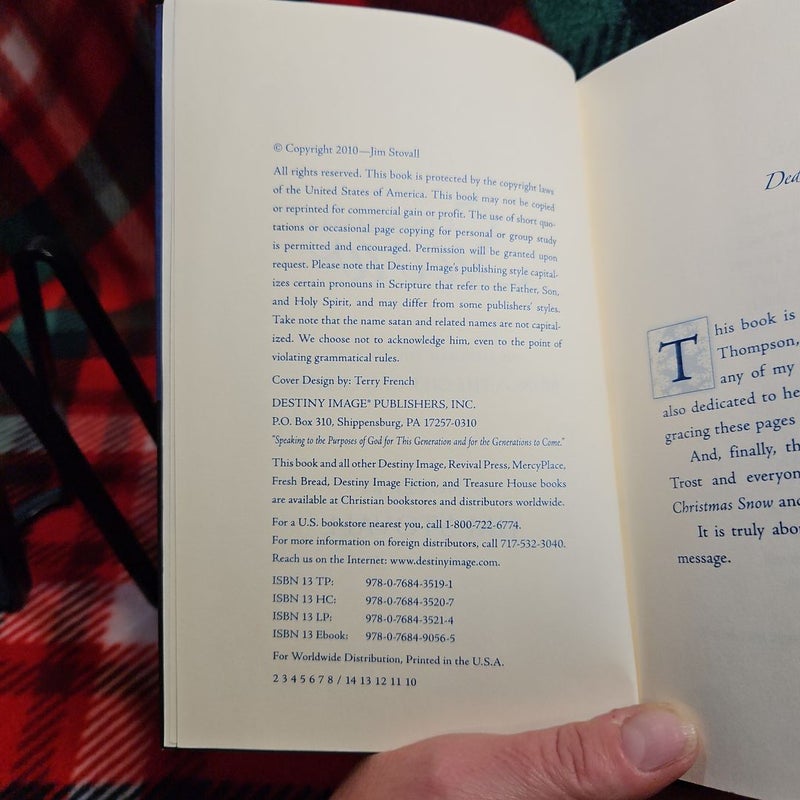 © Copyright 2010—Jim Stovall
All rights reserved. This book is protected by the copyright laws
of the United States of America. This book may not be copied
or reprinted for commercial gain or profit. The use of short quo-
tations or occasional page copying for personal or group study
is permitted and encouraged. Permission will be granted upon
request. Please note that Destiny Image's publishing style capital-
izes certain pronouns in Scripture that refer to the Father, Son,
and Holy Spirit, and may differ from some publishers' styles.
Take note that the name satan and related names are not capital-
ized. We choose not to acknowledge him, even to the point of
violating grammatical rules.
Cover Design by: Terry French
DESTINY IMAGE® PUBLISHERS, INC.
P.O. Box 310, Shippensburg, PA 17257-0310
"Speaking to the Purposes of God for This Generation and for the Generations to Come."
This book and all other Destiny Image, Revival Press, MercyPlace,
Fresh Bread, Destiny Image Fiction, and Treasure House books
are available at Christian bookstores and distributors worldwide.
For a U.S. bookstore nearest you, call 1-800-722-6774.
For more information on foreign distributors, call 717-532-3040.
Reach us on the Internet: www.destinyimage.com.
ISBN 13 TP: 978-0-7684-3519-1
ISBN 13 HC: 978-0-7684-3520-7
ISBN 13 LP: 978-0-7684-3521-4
ISBN 13 Ebook: 978-0-7684-9056-5
For Worldwide Distribution, Printed in the U.S.A.
2 3 4 5 6 7 8 / 14 13 12 11 10
This book is
Thompson,
any of my
also dedicated to
gracing these pages
And, finally,
Trost and
Christmas Snow
It is truly
message.